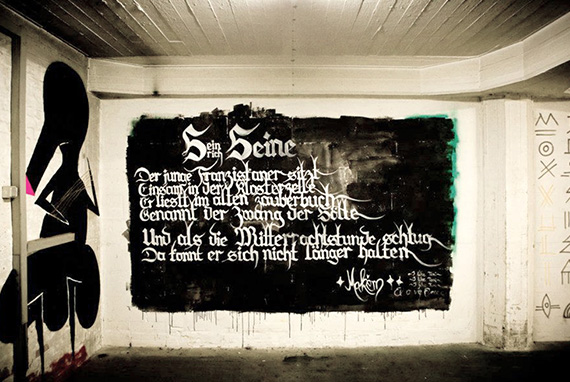 Heinrich Heine
Der junge Franziskaner sitzt
Einsam in der Klosterzelle
Er liesst im alten Zauberbuch
Genannt der Zwang der Hölle
Und als die Mitternachtstunde schlug
Da konnt er sich nicht länger halten